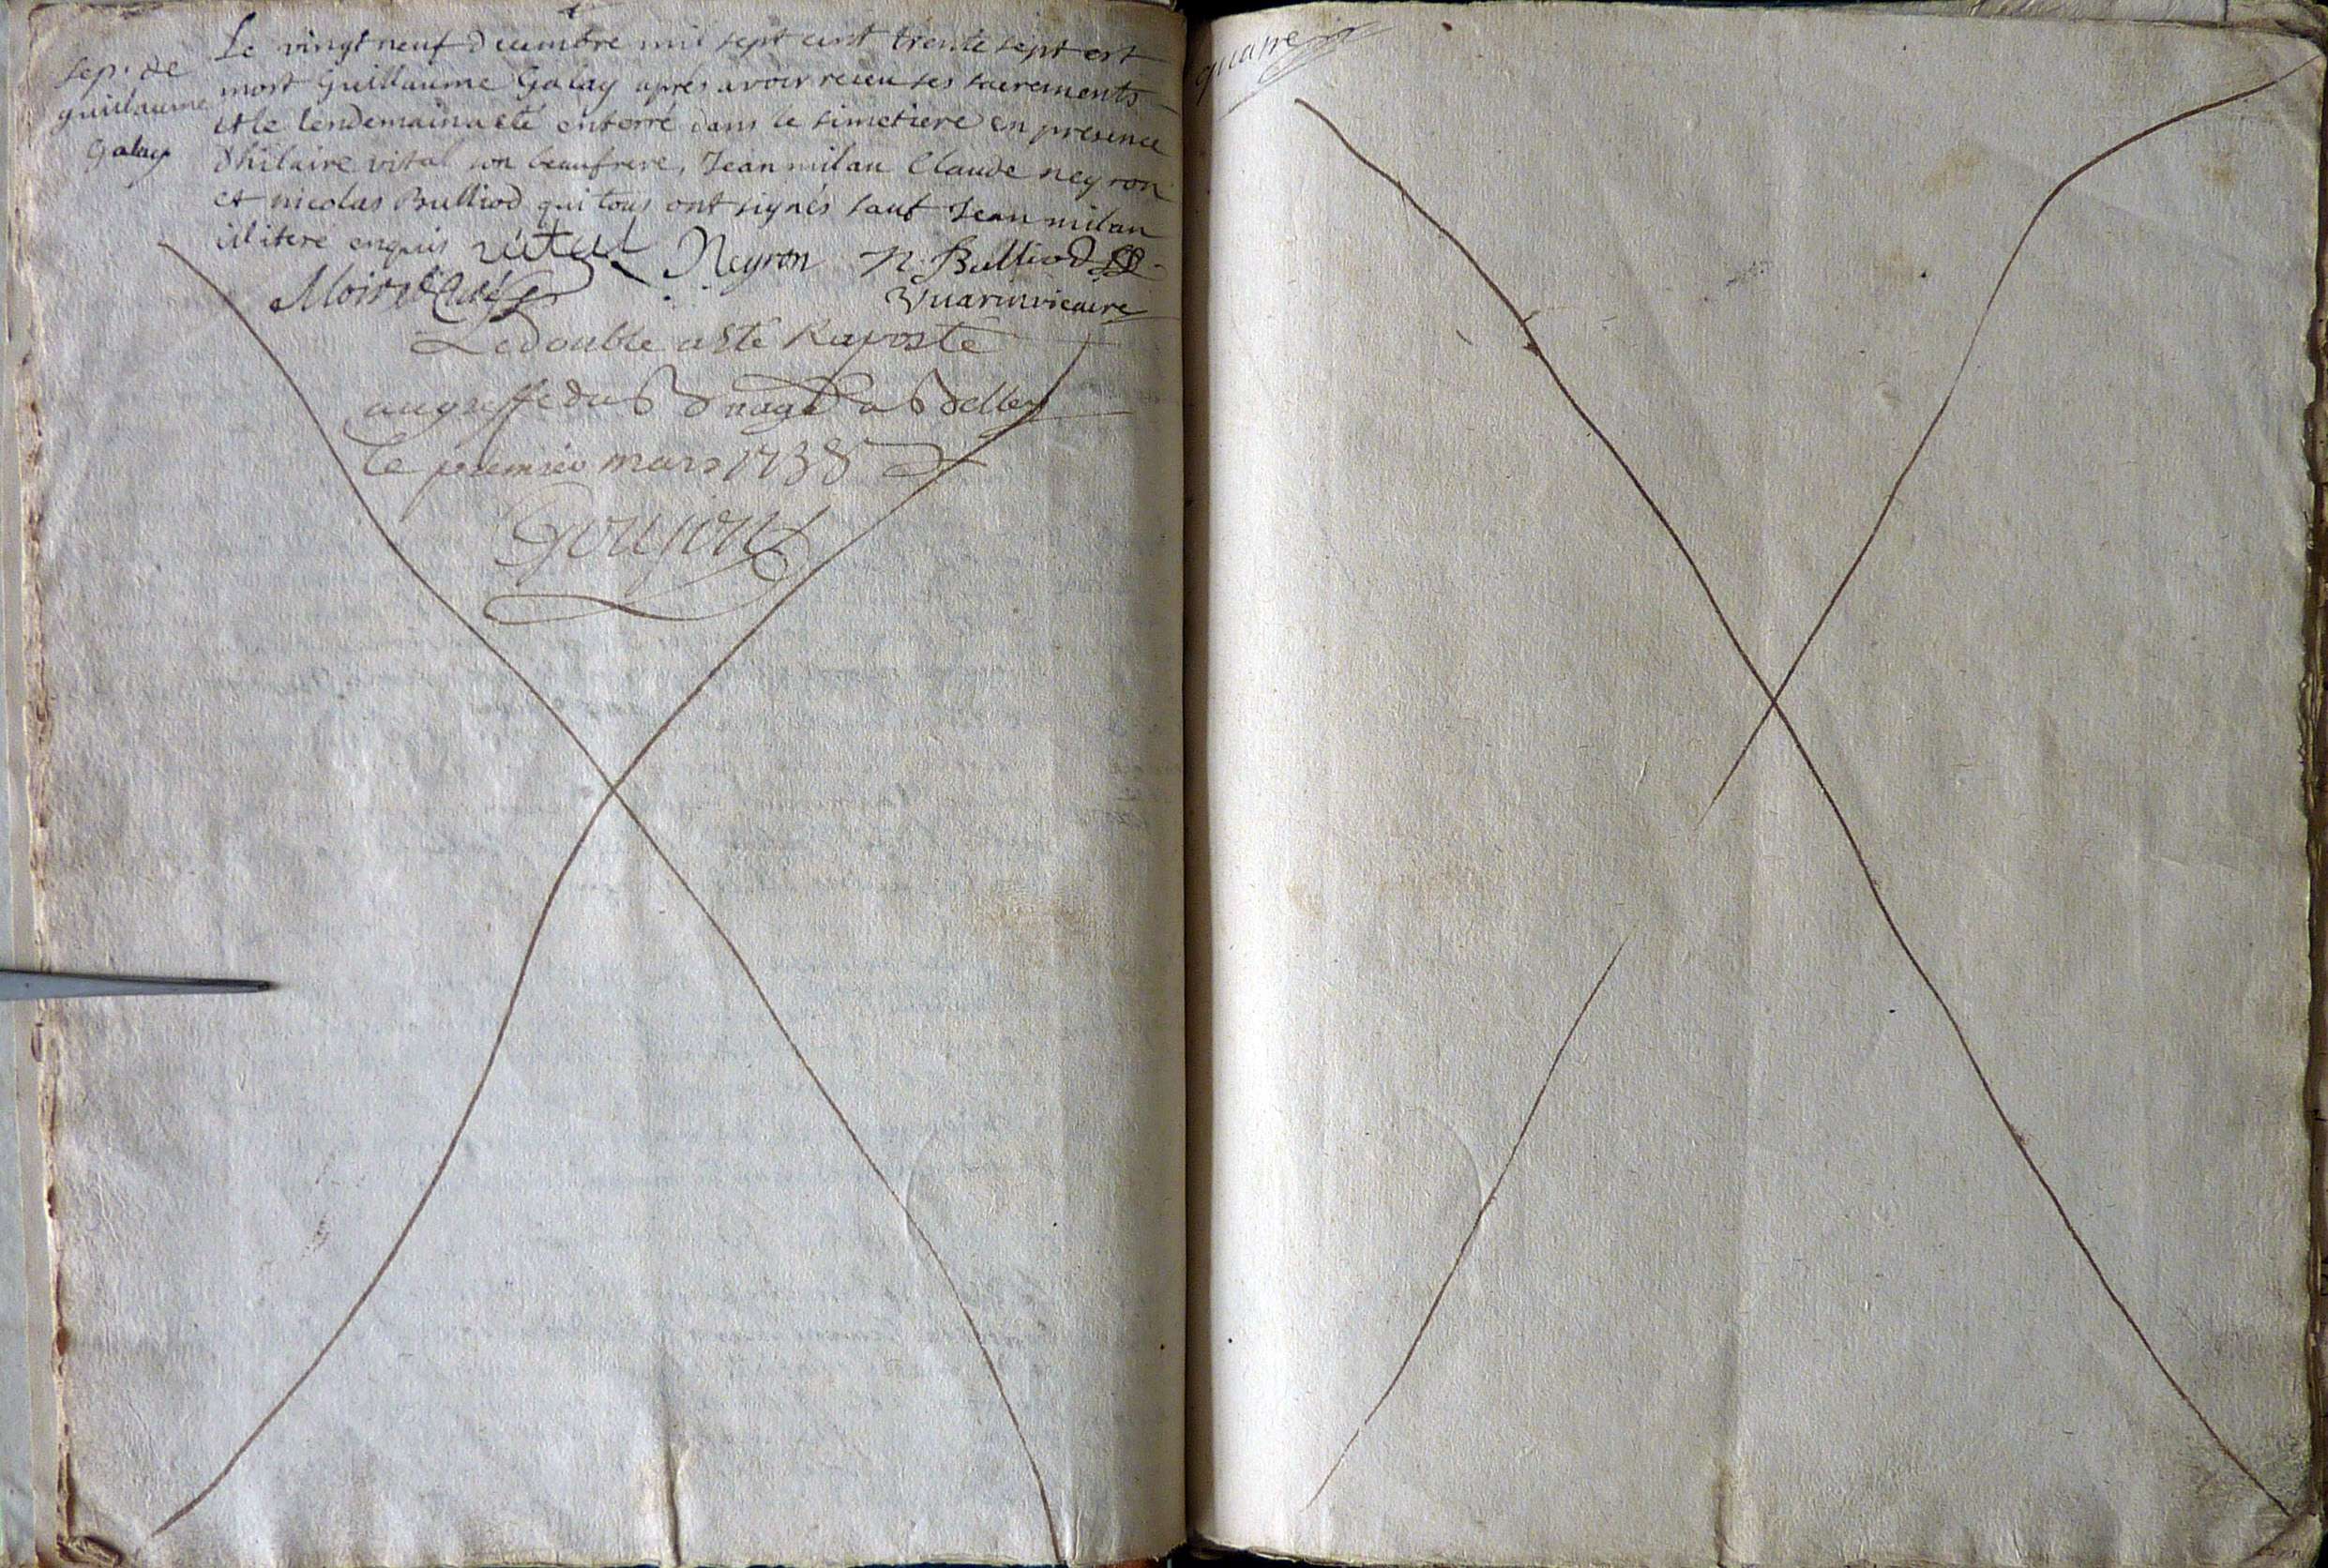 sep. de
guillaume
Galay
Le vingt neuf decembre mil sept cent trente sept est
mort Guillaume Galay apres avoir receu ses sacrements
et le lendemain a eté enterré dans le simetiere en presence
d'hilaire vital son beaufrere, Jean milan Claude neyron
et nicolas Bulliod qui tous ont signés sauf Jean milan
illiteré enquis vital Neyron N. Bulliod
vicaire
Le double a Ete Raporté
au greffe du B du
le premier mars 1738
Goujon
quatre